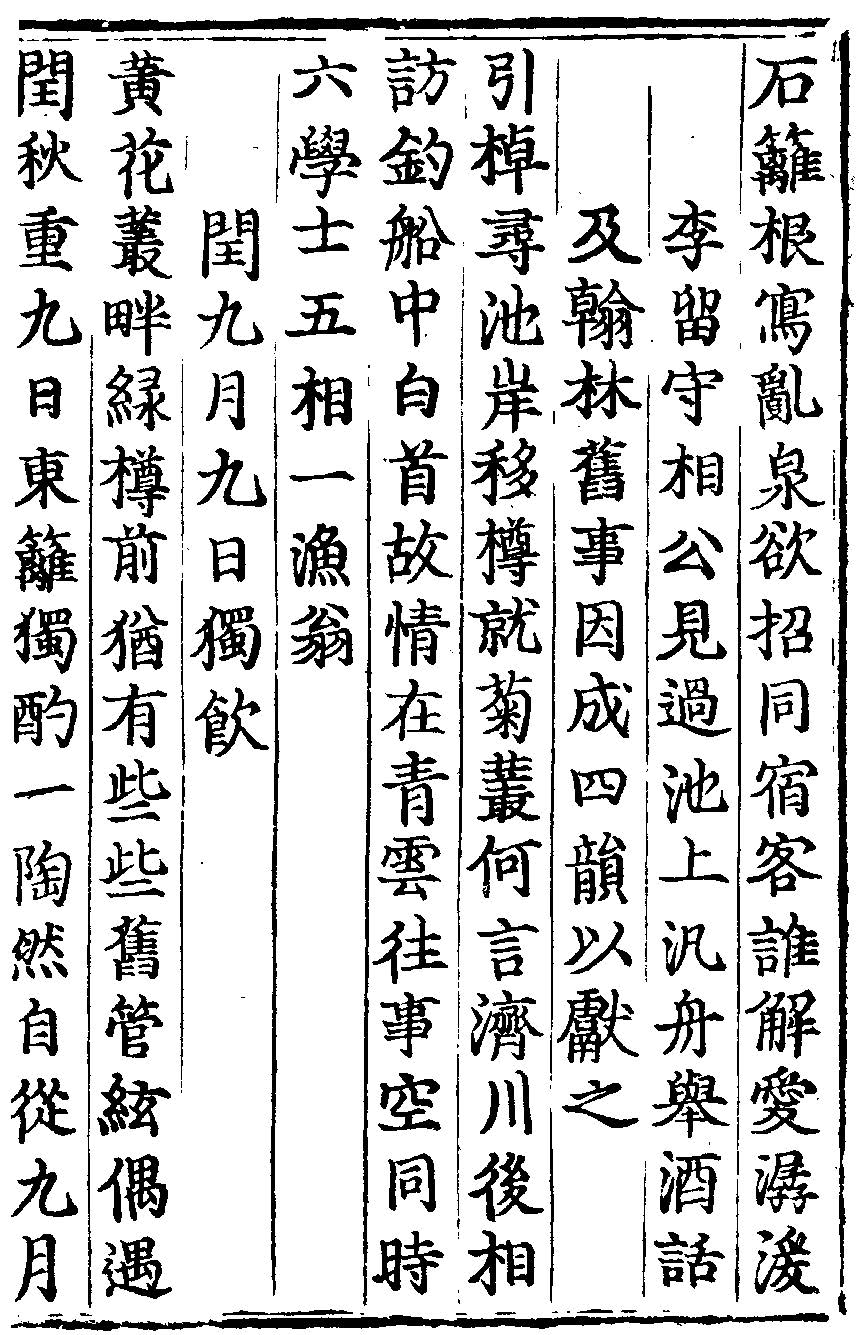 石籬根寫亂泉欲招同宿客誰解愛潺湲
李留守相公見過池上汎舟舉酒話
及翰林舊事因成四韻以獻之
引棹尋池岸移樽就菊叢何言濟川後相
訪釣船中白首故情在青雲往事空同時
六學士五相一漁翁
閏九月九日獨飲
黃花叢畔緑樽前猶有些些舊管絃偶遇
閏秋重九日東籬獨酌一陶然自從九月